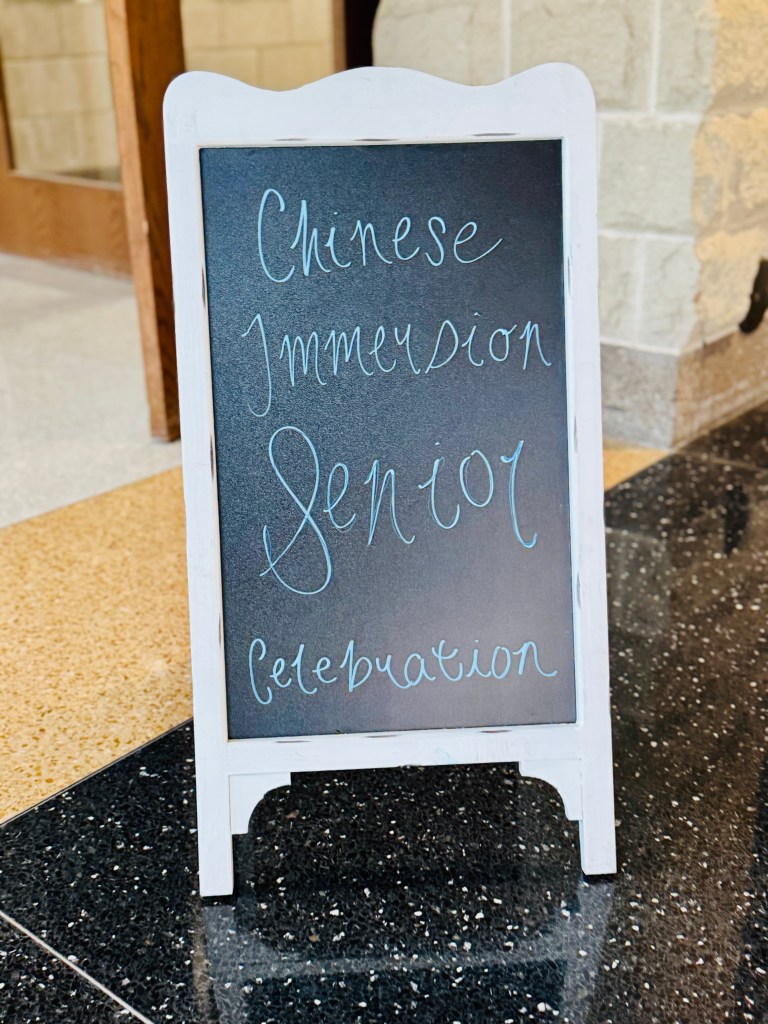 Chinese
Immersion
Senior
Celebration